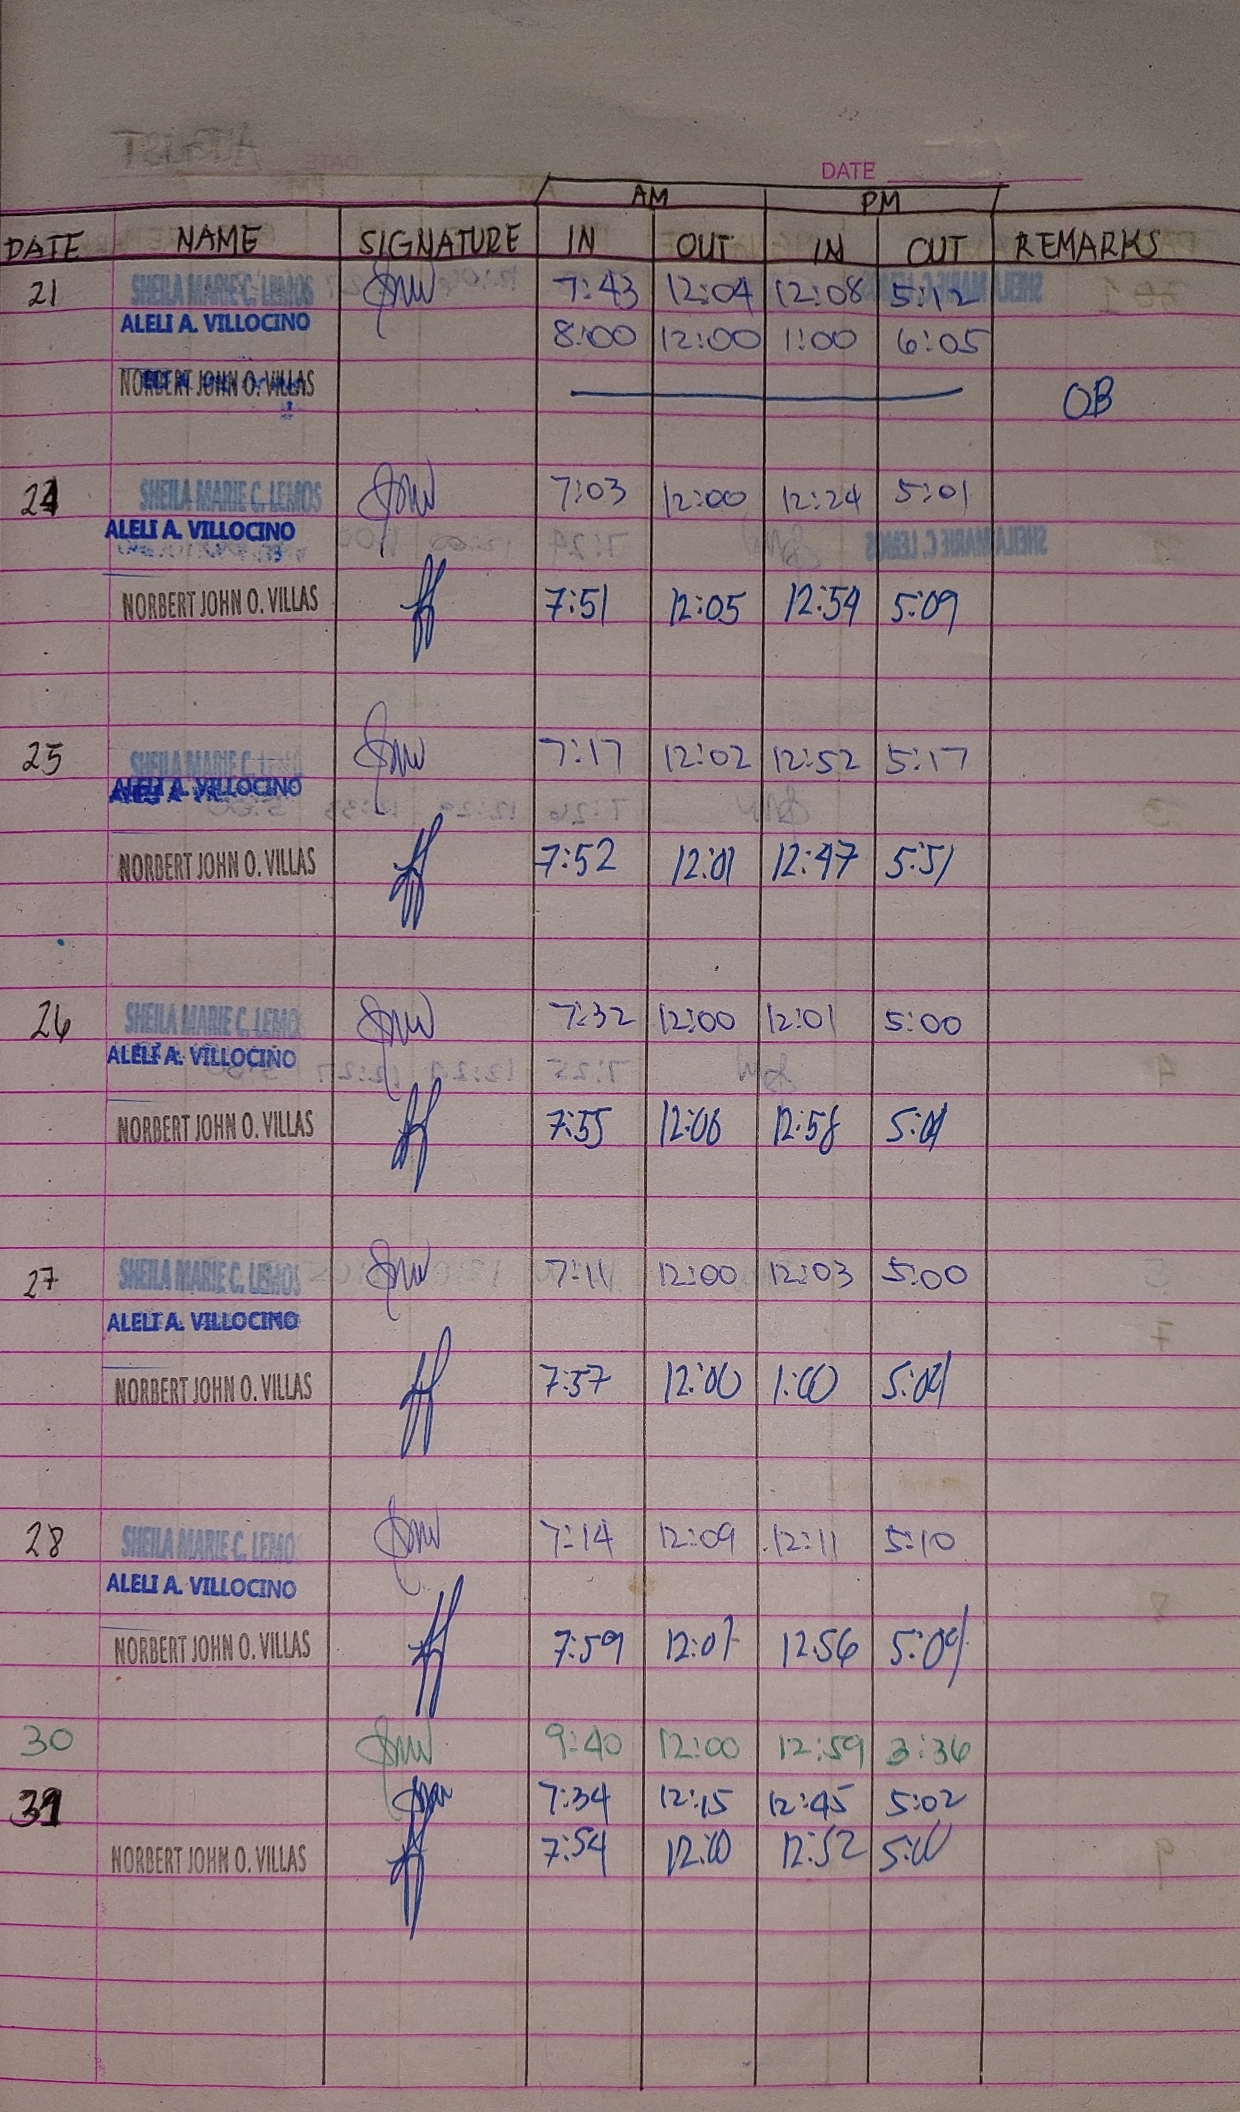 DATE
AM PM
DATE NAME SIGNATURE IN OUT IN OUT REMARKS
21 SHEILA MARIE C. LEMOS 7:43 12:04 12:08 5:12
ALELI A. VILLOCINO 8:00 12:00 1:00 6:05
NORBERT JOHN O. VILLAS OB
24 SHEILA MARIE C. LEMOS 7:03 12:00 12:24 5:01
ALELI A. VILLOCINO
NORBERT JOHN O. VILLAS 7:51 12:05 12:54 5:09
25 SHEILA MARIE C. LEMOS 7:17 12:02 12:52 5:17
ALELI A. VILLOCINO
NORBERT JOHN O. VILLAS 7:52 12:01 12:47 5:51
26 SHEILA MARIE C. LEMO 7:32 12:00 12:01 5:00
ALELI A. VILLOCINO
NORBERT JOHN O. VILLAS 7:55 12:06 12:58
27 SHEILA MARIE C. LEMOS 7:11 12:00 12:03 5:00
ALELI A. VILLOCINO
NORBERT JOHN O. VILLAS 7:57 12:00 1:00
28 SHEILA MARIE C. LEMO 7:14 12:09 12:11 5:10
ALELI A. VILLOCINO
NORBERT JOHN O. VILLAS 7:59 12:07 12:56
30 9:40 12:00 12:59 3:36
31 7:34 12:15 12:45 5:02
NORBERT JOHN O. VILLAS 7:54 12:00 12:52 5:00